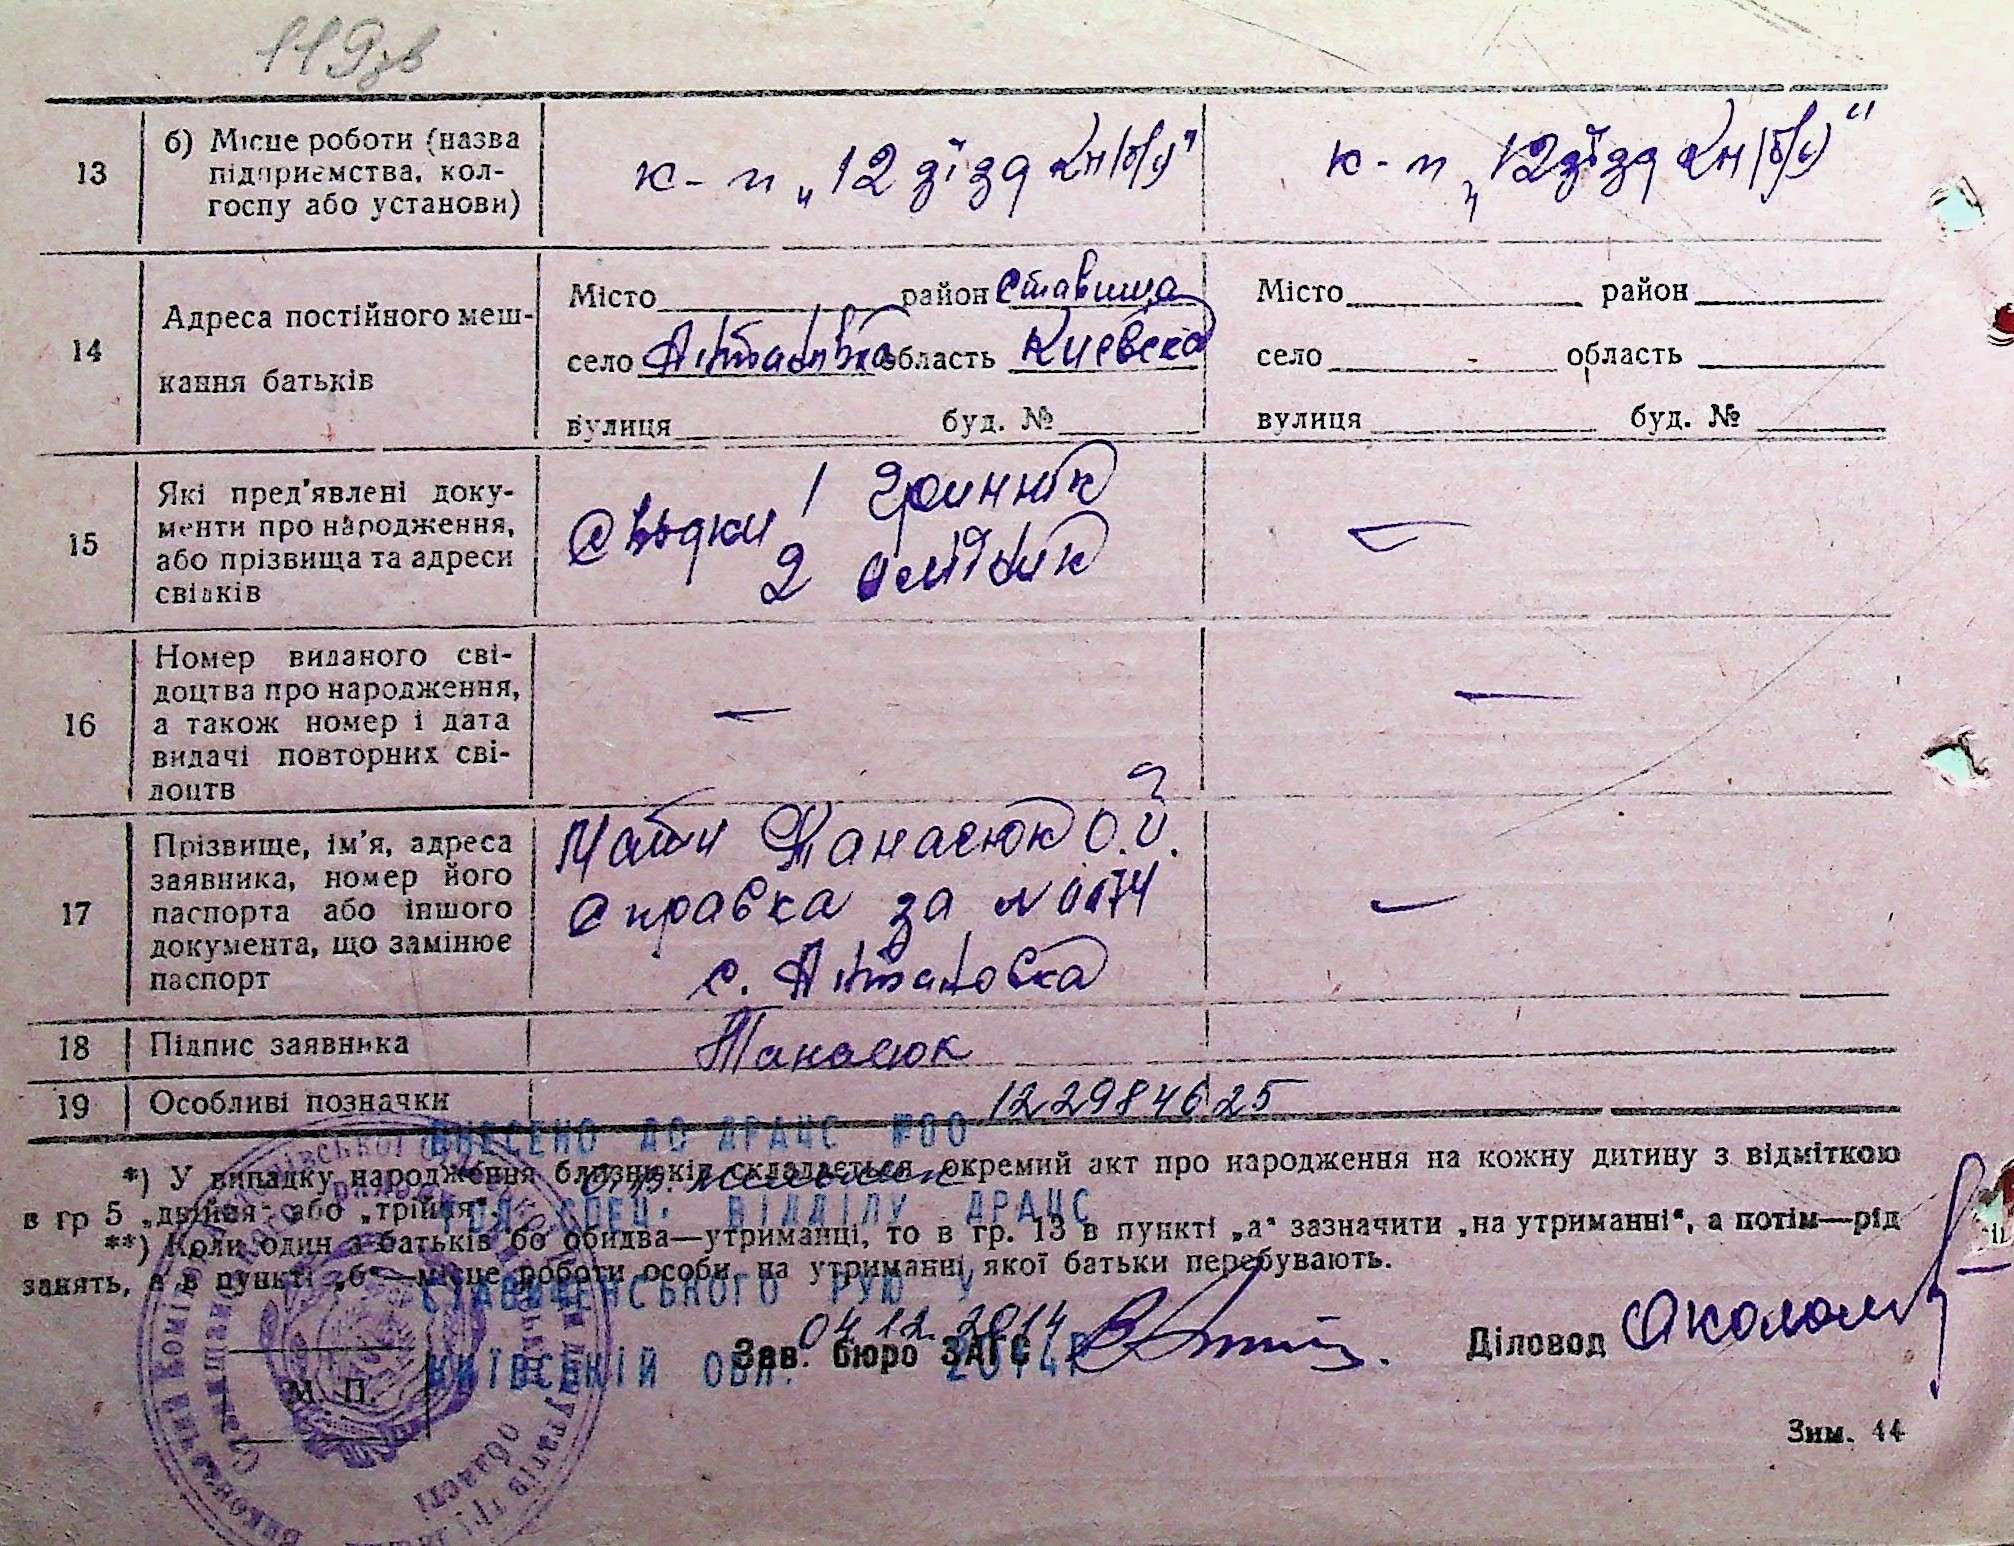 119зв
13 б) Місце роботи (назва підприємства, колгоспу або установи)
к-п „12 зїзд к-п „12 зїзд
14 Адреса постійного мешкання батьків
Місто район Ставища Місто район
село область Києвска село область
вулиця буд. № вулиця буд. №
15 Які пред'явлені доку-
менти про народження,
або прізвища та адреси
свідків
Свьдки 1 Гринник
2 Олійник
—
16 Номер виданого сві-
доцтва про народження,
а також номер і дата
видачі повторних сві-
доцтв
— —
17 Прізвище, ім'я, адреса
заявника, номер його
паспорта або іншого
документа, що замінює
паспорт
Мати Танасюк О.Й.
Справка за №
с.
—
18 Підпис заявника Танасюк
19 Особливі позначки 122984625
ВНЕСЕНО ДО ДРАЦС №00
*) У випадку народження близнюків складається окремий акт про народження на кожну дитину з відміткою
в гр 5 „двійня" або „трійня".
ГОЛ. СПЕЦ. ВІДДІЛУ ДРАЦС
**) Коли один з батьків бо обидва—утриманці, то в гр. 13 в пункті „а" зазначити „на утриманні", а потім—рід
занять, а в пункті „б"—місце роботи особи на утриманні якої батьки перебувають.
СТАВИЩЕНСЬКОГО РУЮ У
04.12.2014
Зав. бюро ЗАГС Діловод
КИЇВСЬКІЙ ОБЛ. 2014Р
М. П.
Зим. 44